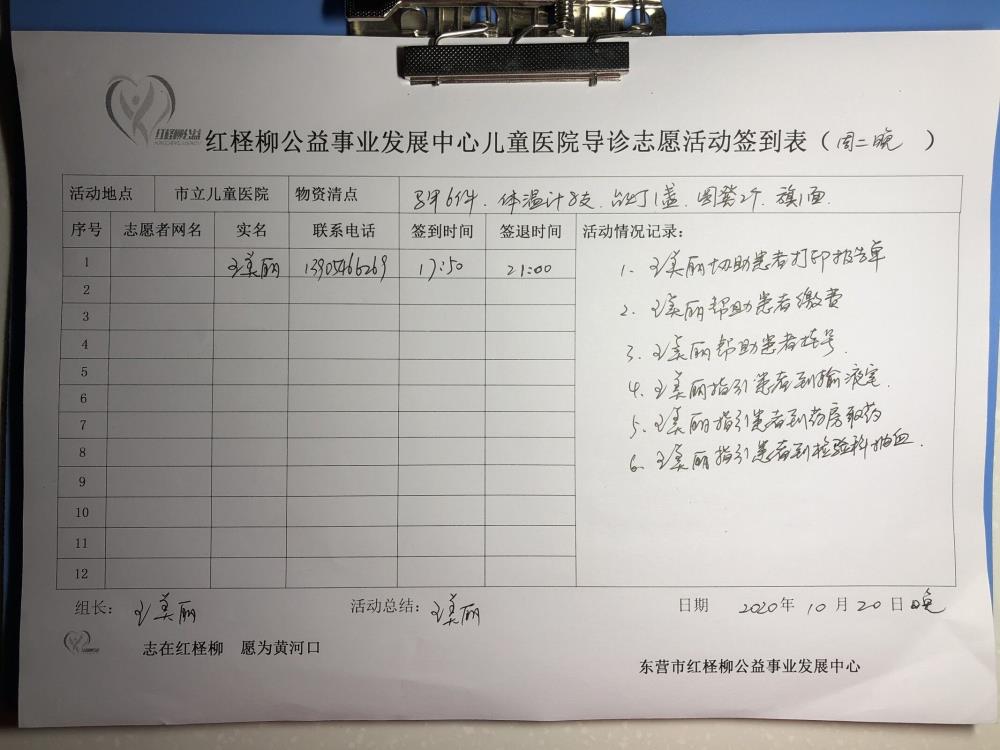 红柽柳公益
红柽柳公益事业发展中心儿童医院导诊志愿活动签到表（周二晚）
活动地点 市立儿童医院 物资清点 马甲6件. 体温计8支. 台灯1盏. 圆凳2个. 旗1面.
序号 志愿者网名 实名 联系电话 签到时间 签退时间 活动情况记录：
1 王美丽 17:50 21:00
1. 王美丽协助患者打印报告单
2
2. 王美丽帮助患者缴费
3
3. 王美丽帮助患者挂号.
4
4. 王美丽指引患者到输液室.
5
5. 王美丽指引患者到药房取药
6
6. 王美丽指引患者到检验科抽血.
7
8
9
10
11
12
组长： 王美丽 活动总结：王美丽 日期 2020年 10月20日 晚
志在红柽柳 愿为黄河口
东营市红柽柳公益事业发展中心